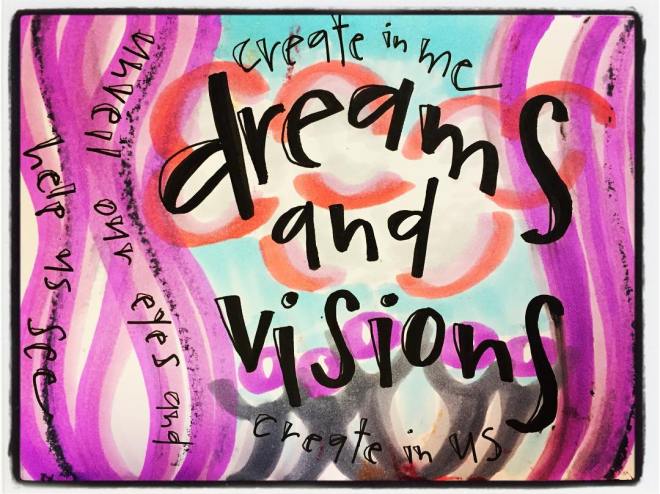 create in me
dreams
and
visions
create in us
unveil our eyes and
help us see